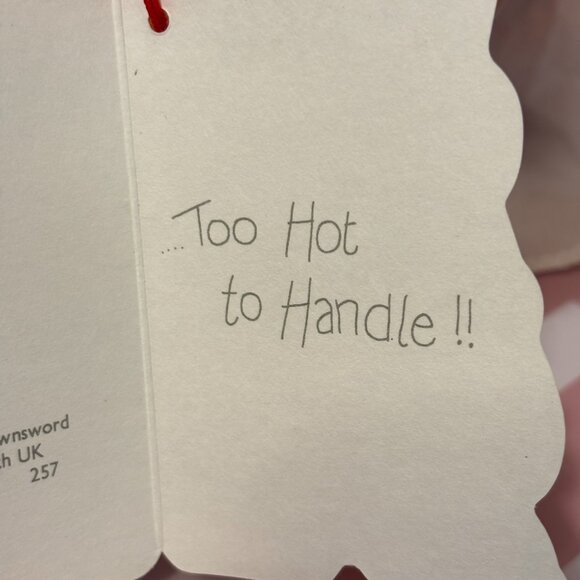 ....Too Hot
to Handle !!
wnsword
h UK
257